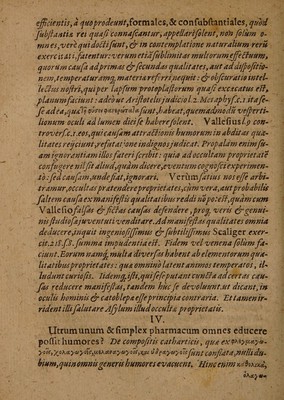 efficientis, à quo prodeunt, formales, & consubstantiales, quòd
substantia rei quasi connascantur, appellari solent, non solùm o-
mnes, verè qui docti sunt, & in contemplatione naturalium rerū
exercitati, fatentur: verum etiā sublimitas multorum effectuum,
quorum causa ad primas & secundas qualitates, aut ad dispositio-
nem, temperaturamq́, materia referri nequit: & obscuratio intel-
lectus nostri, qui per lapsum protoplastorum quasi excæcatus est,
planum faciunt: adeò ut Aristotelis iudicio 2. Metaphys. c. 1 ita se
se ad ea, quæ sunt, habeat, quemadmodū vesperti-
lionum oculi ad lumen diei se habere solent. Vallesius lib. con-
trovers. c. 1. eos, qui causam attractionis humorum in abditas qua-
litates reijciunt, refutatione indignos judicat. Propalàm enim su-
am ignorantiam illos fateri scribit: quia ad occultam proprietatē
confugere nil sit aliud, quàm dicere, eventum cognosci experimen-
to: sed causam, unde fiat, ignorari. Verùm satius nos esse arbi-
tramur, occultas prætendere proprietates, cùm vera, aut probabilis
saltem causa ex manifestis qualitatibus reddi nō potest, quàm cum
Vallesio falsas & fictas causas defendere, prog. veris & genui-
nis studiosæ juventuti venditare. Ad manifestas qualitates omnia
deducere, inquit ingeniosissimus & subtilissimus Scaliger exer-
cit. 218. s. 8. summa impudentia est. Fidem vel venena solùm fa-
ciunt. Eorum namq́, multa diversa habent ab elementorum qua-
litatibus proprietates: qua omninò latent animos temperatos, il-
ludunt curiosis. Iidemq́, isti, qui se se putant cuncta ad certas cau-
sas reducere manifestas, tandem huc se devolvunt, ut dicant, in
oculis hominis & catoblepa esse principia contraria. Et tamen ir-
rident illi salutare Asylum illud occultæ proprietatis.
IV.
Utrum unum & simplex pharmacum omnes educere
possit humores? De compositis catharticis, quæ
sunt conflata, nulli du-
bium, quin omnis generis humores evacuent. Hinc enim